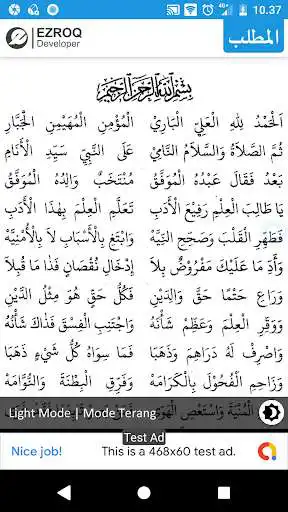 10.37
EZROQ
Developer
المطلب
بسم الله الرحمن الرحيم
اَلْحَمْدُ لِلّٰهِ الْعَلِيِّ الْبَارِيْ الْمُؤْمِنِ الْمُهَيْمِنِ الْجَبَّارِ
ثُمَّ الصَّلَاةُ وَالسَّلَامُ النَّامِيْ عَلَى النَّبِيِّ سَيِّدِ الْأَنَامِ
بَعْدُ فَقَالَ عَبْدُهُ الْمُوَفَّقُ مُنْتَخَبٌ وَالِدُهُ الْمُوَفَّقُ
يَا طَالِبَ الْعِلْمِ رَفِيْعَ الْأَدَبِ تَعَلَّمِ الْعِلْمَ بِهٰذَا الْأَدَبِ
فَطَهِّرِ الْقَلْبَ وَصَحِّحِ النِّيَّهْ وَابْتَغِ بِالْأَسْبَابِ لَا بِالْأُمْنِيَّهْ
وَأَدِّ مَا عَلَيْكَ مَفْرُوْضٌ بِلَا إِدْخَالِ نُقْصَانٍ فَذَا مَا قُبِلَا
وَرَاعِ حَتْمًا حَقَّ وَالِدَيْنِ فَكُلُّ حَقٍّ هُوَ مِثْلُ الدَّيْنِ
وَوَقِّرِ الْعِلْمَ وَعَظِّمْ شَأْنَهُ وَاجْتَنِبِ الْفِسْقَ فَذَاكَ شَأْنُهُ
وَاصْرِفْ لَهُ دَرَاهِمَ وَذَهَبَا فَمَا سِوَاهُ كُلُّ شَيْءٍ ذَهَبَا
وَزَاحِمِ الْفُحُوْلَ بِالْكَرَامَهْ وَفَرِّقِ الْبِطْنَةَ وَالنُّوَّامَهْ
الْمُنْيَةَ وَاسْتَعْصِ الْهَوَى
Light Mode | Mode Terang
Test Ad
Nice job! This is a 468x60 test ad.